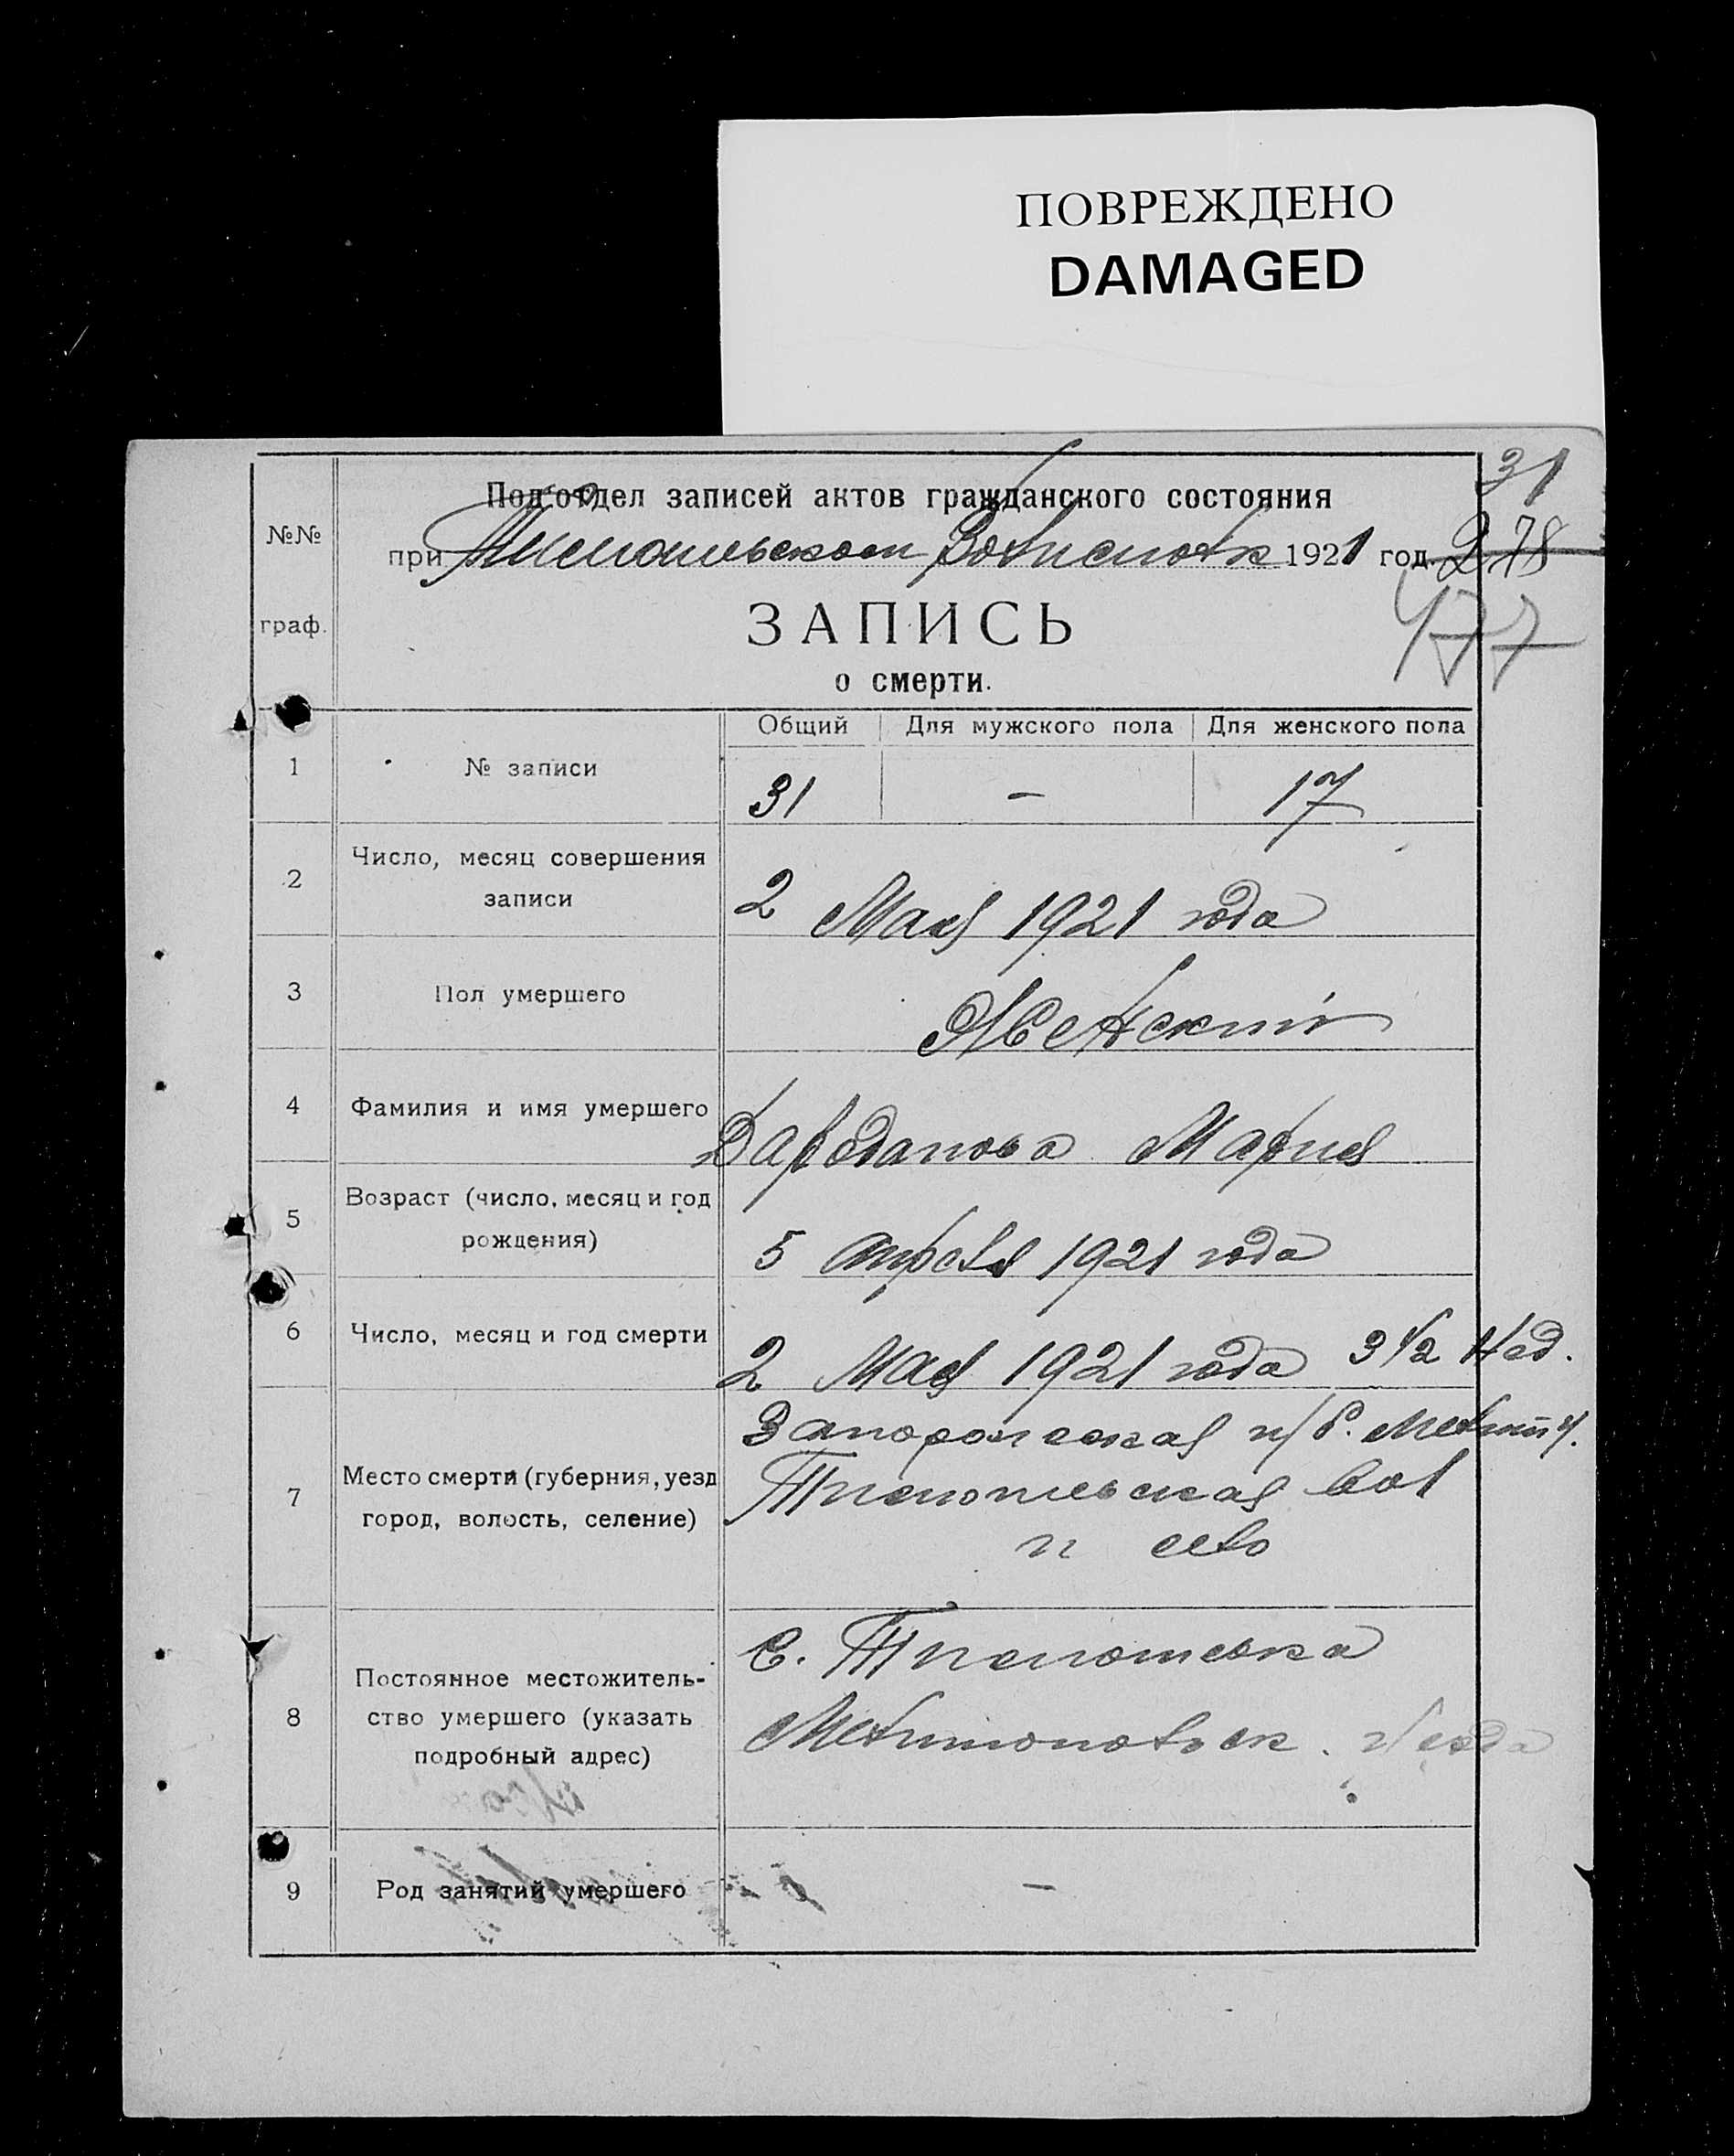 ПОВРЕЖДЕНО
DAMAGED
31
Подотдел записей актов гражданского состояния
при Волисполк 1921 год. 278
477
№№ граф.
ЗАПИСЬ
о смерти.
Общий Для мужского пола Для женского пола
1 № записи 31 — 17
2 Число, месяц совершения
записи 2 Мая 1921 года
3 Пол умершего Женский
4 Фамилия и имя умершего Мария
5 Возраст (число, месяц и год
рождения) 5 Апреля 1921 года
6 Число, месяц и год смерти 2 Мая 1921 года 3 1/2 Нед.
7 Место смерти (губерния, уезд
город, волость, селение) Запорожская губ. Мелит у.
вол
и село
8 Постоянное местожитель-
ство умершего (указать
подробный адрес) С.
Мелитопольск. уезда
9 Род занятий умершего —